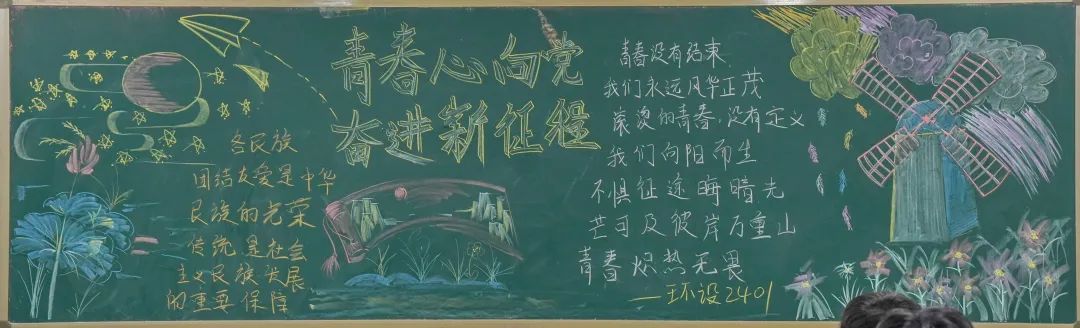 青春心向党
奋进新征程
各民族
团结友爱是中华
民族的光荣
传统是社会
主义民族发展
的重要保障
青春没有结束
我们永远风华正茂
滚烫的青春,没有定义
我们向阳而生
不惧征途晦暗光
芒可及彼岸万重山
青春炽热无畏
——环设2401